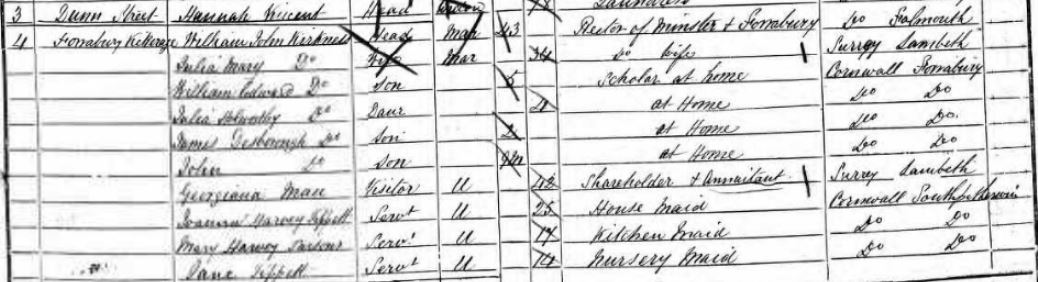 3 Dunn Street Hannah Vincent Head Laundress
4 Forrabury William John Kirkness Head Mar 43 Rector of Minster & Forrabury Do Falmouth
Julia Mary Do Wife Mar 34 Do Wife Surrey Lambeth
William Edward Do Son 5 Scholar at home Cornwall Forrabury
Julia Do Daur 4 at Home Do Do
James Desborough Do Son 2 at Home Do Do
John Do Son at Home Do Do
Georgiana Visitor U 42 Shareholder & Annuitant Surrey Lambeth
Harvey Tippett Servt U 25 House Maid Cornwall
Mary Harvey Parsons Servt U 17 Kitchen Maid Do Do
Jane Tippett Servt U 14 Nursery Maid Do Do